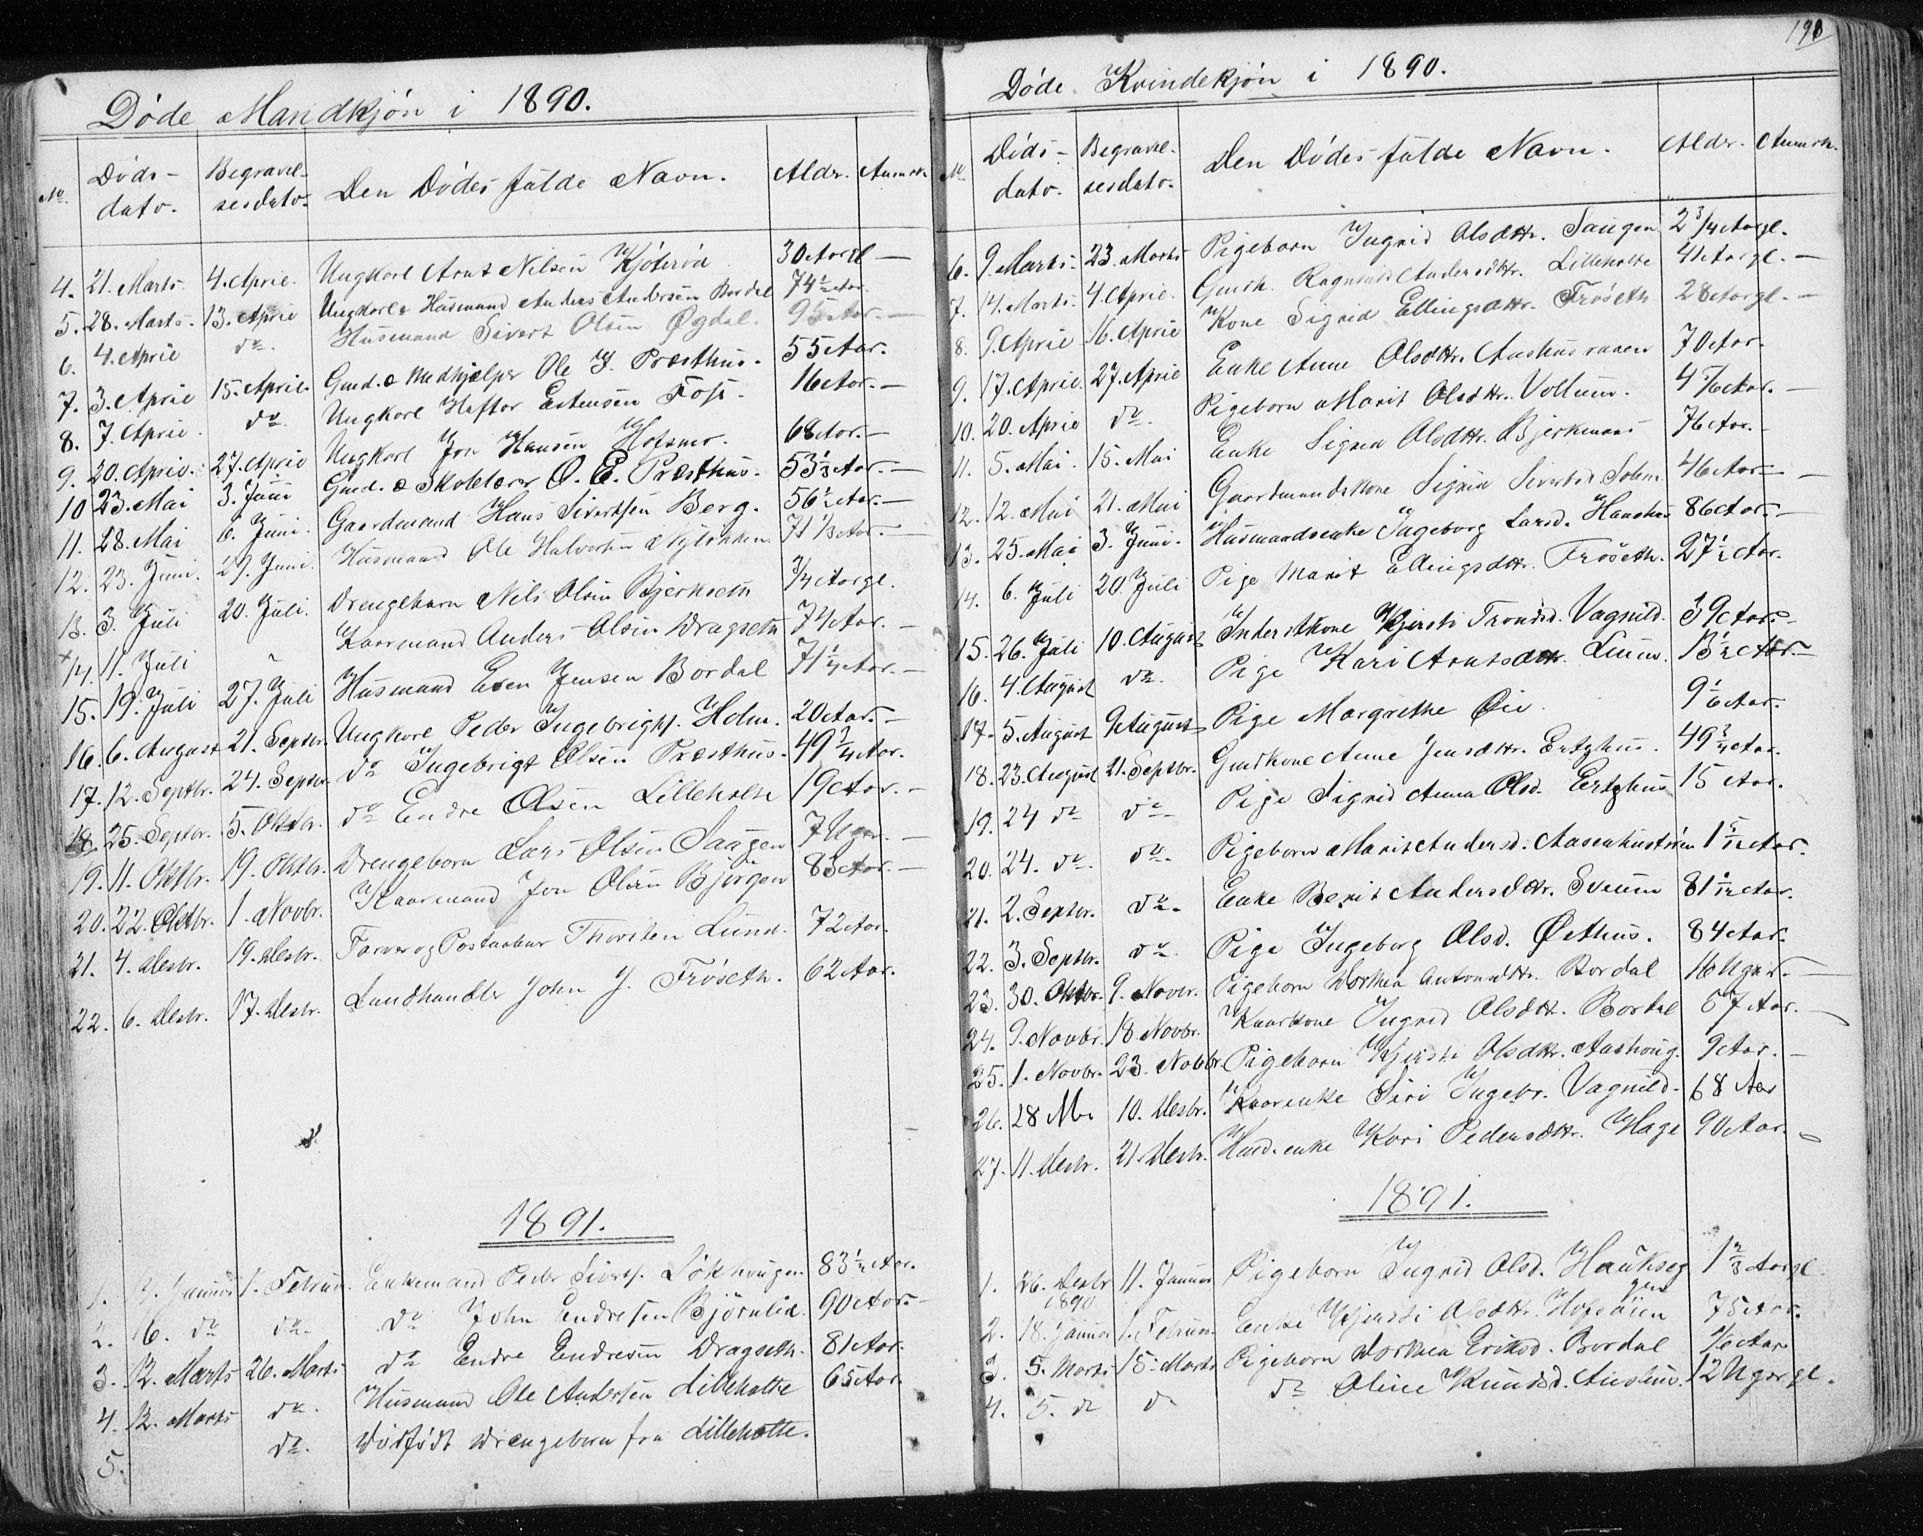 198
Døde Mandkjön i 1890.
No. Døds-dato. Begravelsesdato. Den Dødes fulde Navn. Alder. Anmrk.
4. 21. Marts. 4. April. Ungkarl Arnt Nilsen 30 Aar gl. —
5. 28. Marts. 13. April Ungkarl & Husmand Anders Andersen Bordal 74½ Aar.
6. 4. April do. Husmand Sivert Olsen Øgdal. 95 Aar. —
7. 3. April 15. April. Gmd. & Medhjælper Ole J. Præsthus. 55 Aar.
8. 7. April. do. Ungkarl Haftor Estensen Foss. 16 Aar. —
9. 20. April. 27. April Ungkarl Jon Hansen 68 Aar. —
10 23. Mai 3. Juni Gmd. & Skolelærer O. E. Præsthus. 53⅓ Aar. —
11. 28. Mai 6. Juni. Gaardmand Hans Sivertsen Berg. 56½ Aar. —
12. 23. Juni. 29. Juni. Husmand Ole Halvorsen 71⅓ Aar. —
13. 3. Juli 20. Juli. Drengebarn Nils Olsen Bjerkseth ¾ Aar gl.
14. 11. Juli Kaarmand Anders Olsen Dragseth 74 Aar. —
15. 19. Juli 27. Juli Husmand Esten Jensen Bordal 71¼ Aar. —
16. 6. August 21. Septbr. Ungkarl Peder Ingebrigts. Holm. 20 Aar. —
17. 12. Septbr. 24. Septbr. do Ingebrigt Olsen Præsthus. 49¾ Aar.
18. 25. Septbr. 5. Oktbr. do Endre Olsen Lilleholte 19 Aar. —
19. 11. Oktbr. 19. Oktbr. Drengebarn Lars Olsen Saugen 7 Uger. —
20. 22. Oktbr. 1. Novbr. Kaarmand Jon Olsen Bjørgen 85 Aar. —
21. 4. Desbr. 19. Desbr. Farver og Postaabner Thorsten Lund. 72 Aar.
22. 6. Desbr. 17. Desbr. Landhandler John J. Frøseth. 62 Aar.
1891.
1. 17. Januar 1. Februar. Enkemand Peder Siverts. Løkhaugen 83½ Aar.
2. 16. do do. do John Endresen Bjørnlid. 90 Aar. —
3. 12. Marts 26. Marts do Endre Endresen Dragseth. 81 Aar.
4. 12. Marts do. Husmand Ole Andersen Lilleholte 65 Aar.
5. do. Dødfødt Drengebarn fra Lilleholte.
Døde Kvindekjön i 1890.
No. Døds-dato. Begravelsesdato. Den Dødes fulde Navn. Alder. Anmrk.
6. 9. Marts. 23. Marts Pigebarn Ingrid Olsdttr. Saugen 2¾ Aar gl.
7. 14. Marts 4. April. Gmdk. Ragnhild Andersdttr. Lilleholte 41 Aar gl. —
8. 9. April 16. April Kone Sigrid Ellingsdttr. Frøseth 28 Aar gl. —
9. 17. April. 27. April Enke Anne Olsdttr. 70 Aar.
10. 20. April do. Pigebarn Marit Olsdttr. Vollum. Aar. —
11. 5. Mai. 15. Mai Enke Sigrid Olsdttr. 76 Aar. —
12. 12. Mai 21. Mai Gaardmandskone Sigrid Sivertsd. 46 Aar. —
13. 25. Mai 3. Juni. Husmandsenke Ingeborg Larsd. 86 Aar. —
14. 6. Juli 20. Juli Pige Marit Ellingsdttr. Frøseth. 27½ Aar.
15. 26. Juli 10. August Inderstkone Kjersti Trondsd. Vagnild. 39 Aar.
16. 4. August do. Pige Kari Arntsdttr. 13½ Aar. —
17. 5. August 9 August Pige Margrethe Øie. 9⅙ Aar.
18. 23. August 21. Septbr. Gmdkone Anne Jensdttr. Ertzhus. 49¾ Aar.
19. 24 do do. Pige Sigrid Anna Olsd. Ertzhus 15 Aar.
20. 24. do. do. Pigebarn Marit Andersd. 1 5/12 Aar.
21. 2. Septbr. do. Enke Berit Andersdttr. Sveum 81 1/12 Aar.
22. 3. Septbr. do. Pige Ingeborg Olsd. Østhus. 84 Aar.
23. 30. Oktbr. 9. Novbr. Pigebarn Dorthea Antonsdttr. Bordal 16 Uger. —
24. 9. Novbr. 18. Novbr. Kaarkone Ingrid Olsdttr. Bordal 67 Aar. —
25. 1. Novbr. 23. Novbr. Pigebarn Kjersti Olsdttr. Aashaug. 9 Aar. —
26. 28 10. Desbr. Kaarenke Siri Ingebr. Vagnild. 68 Aar
27. 11. Desbr. 21. Desbr. Kari Pedersdttr. Hage 90 Aar. —
1891.
1. 26. Desbr 1890 11. Januar Pigebarn Ingrid Olsd. Haukhaugen 1⅔ Aar gl
2. 18. Januar 1. Februar Enke Kjersti Olsdttr. 75 Aar.
3. 5. Marts 15. Marts Pigebarn Dorthea Eriksd. Bordal Aar
4. 5. do do do Oline Knudsd. 12 Uger gl.